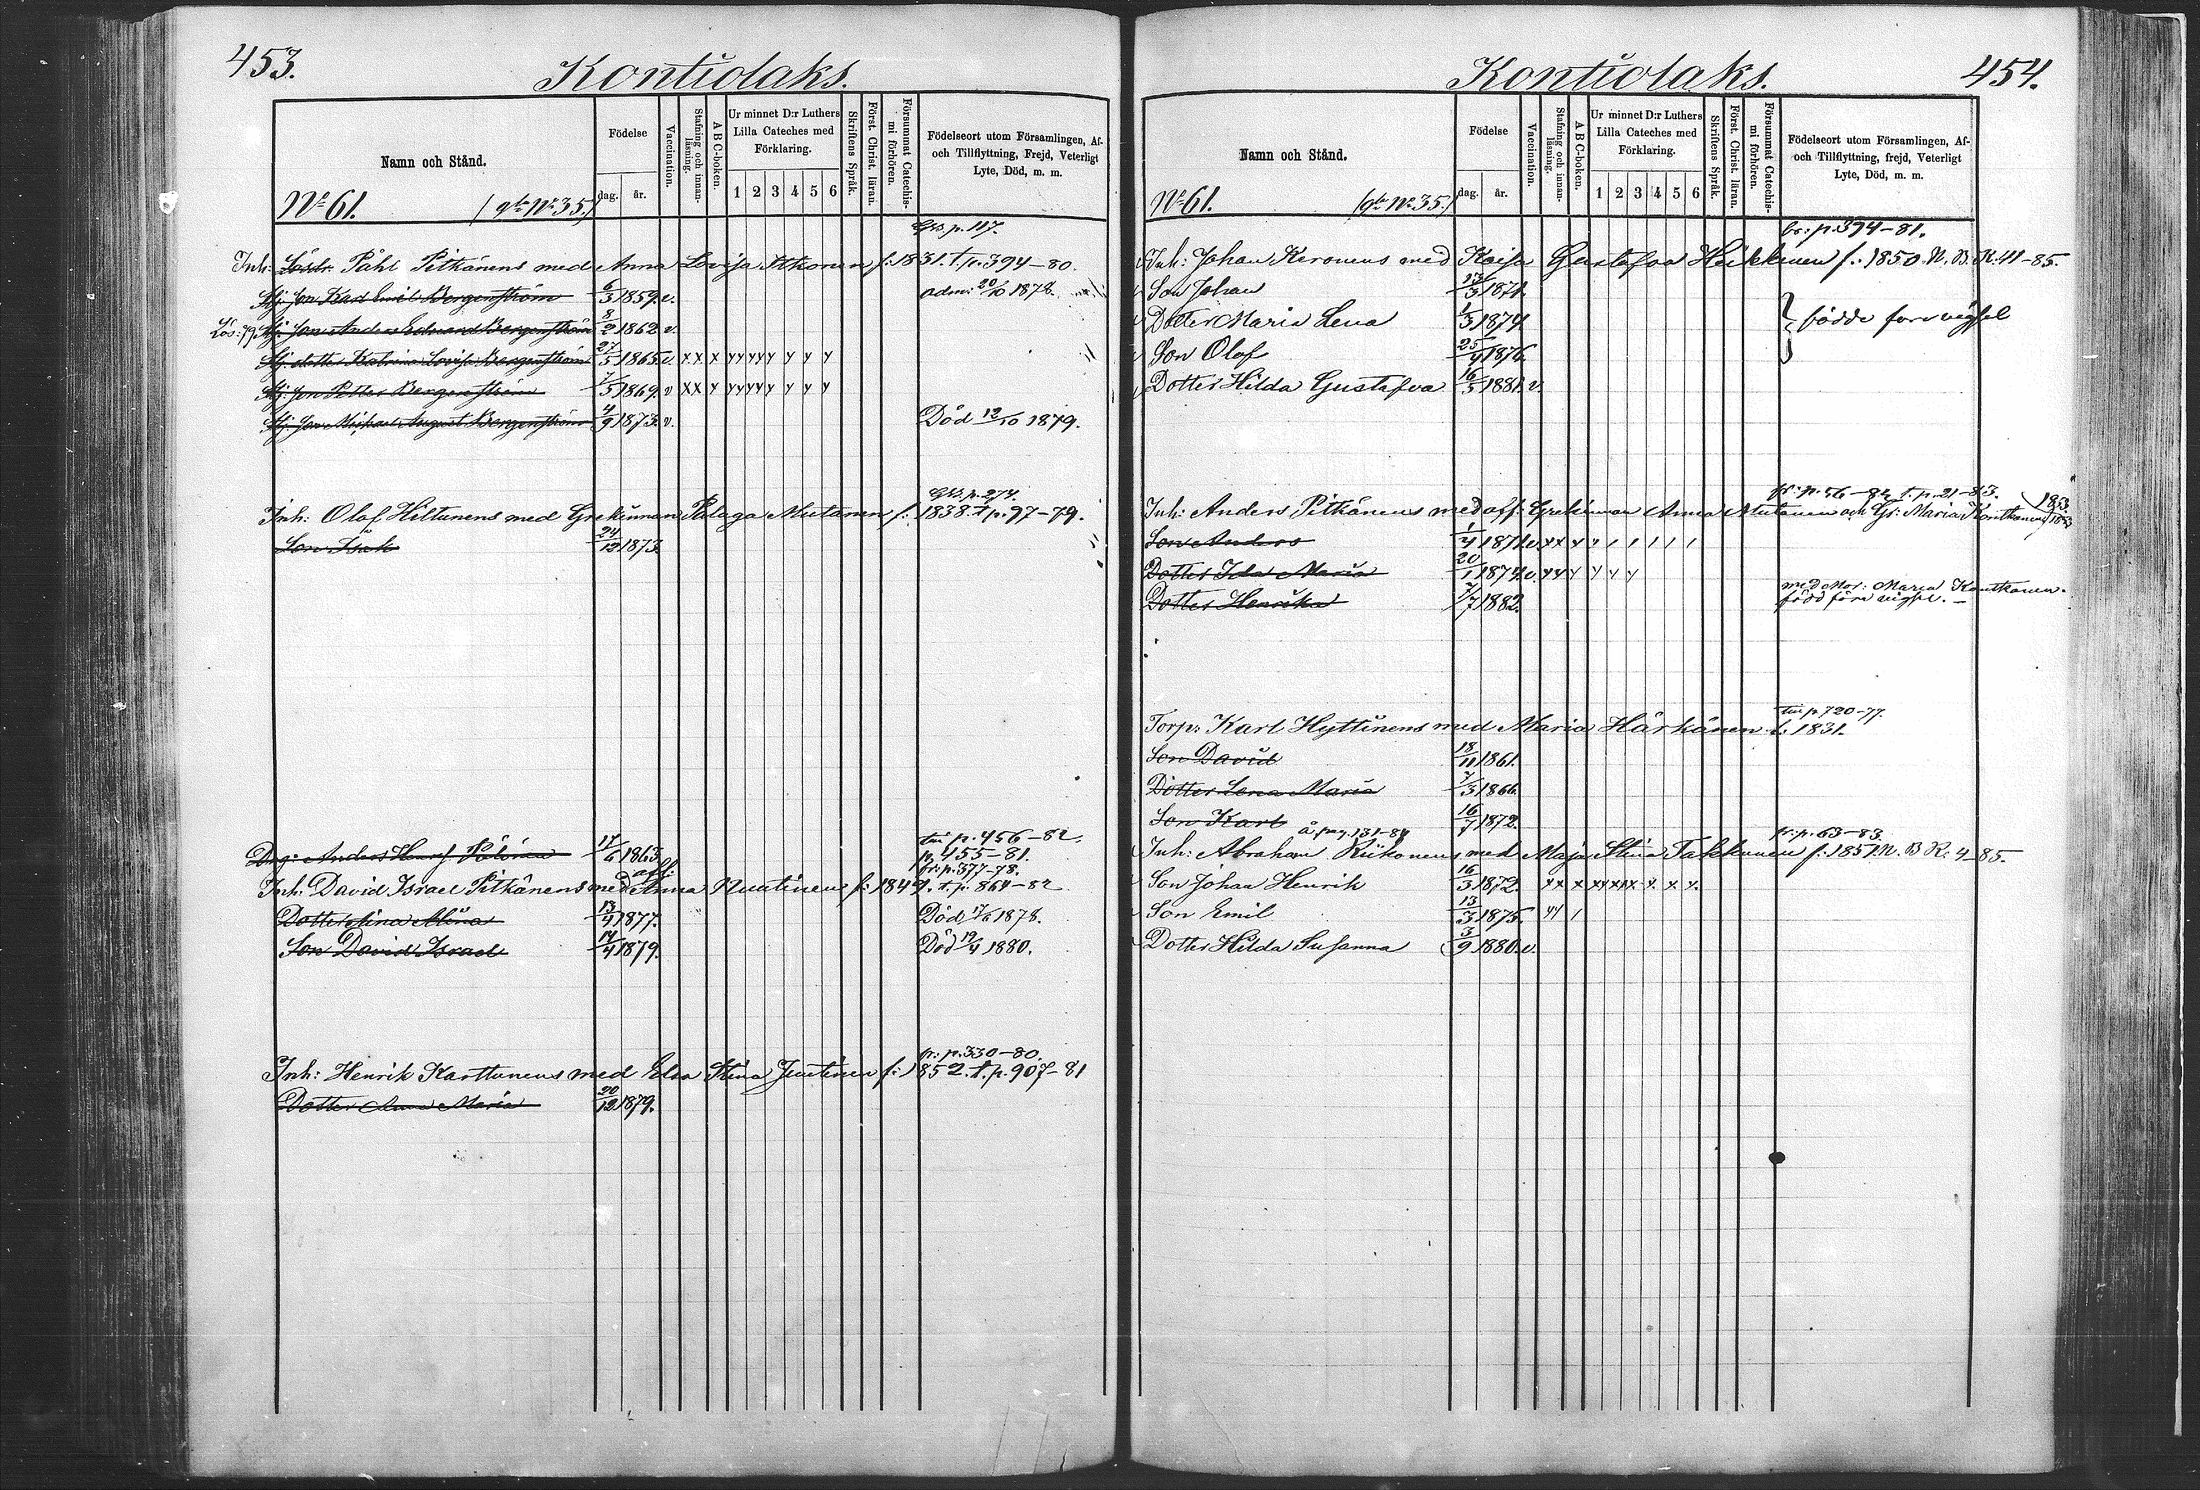 453.
Kontiolaks.
Namn och Stånd.
Födelse
dag. år.
Vaccination.
Stafning och innan-läsning.
A B C-boken.
Ur minnet D:r Luthers Lilla Cateches med Förklaring.
1 2 3 4 5 6
Skriftens Språk.
Först. Christ. läran.
Försummat Catechis-mi förhören.
Födelseort utom Församlingen, Af- och Tillflyttning, Frejd, Veterligt Lyte, Död, m. m.
No 61. (gla No 35.)
p. 117.
Inh: Påhl Pitkänens med Anna Lovisa Itkonen f: 1831. t. p. 394-80.
Styf son Karl Emil Bergenström 6/3 1859. v. adm: 20/10 1878.
Lös: 79. Styf son Anders Edvard Bergenström 8/2 1862. v.
Styf dotter Katrina Lovisa Bergenström 27/5 1865. v. x x x y y y y y y y y
Styf son Petter Bergenström 7/5 1869. v x x y y y y y y y y
Styf son Mickael August Bergenström 4/9 1873. v. Död 12/10 1879.
p. 274.
Inh: Olof Hiltunens med Grekinnan Palaga Mutanen f: 1838. t p. 97-79.
Son Isak 24/12 1873.
till p. 456-82.
Drg: Anders Henr: 17/6 1863. p. 455-81.
aff: fr: p. 377-78.
Inh: David Israel Pitkänens med Anna Nuutinen f: 1849. t. p. 864-82
Dotter Stina Alina 13/4 1877. Död 17/6 1878.
Son David Israel 14/4 1879. Död 19/4 1880.
fr: p. 330-80.
Inh: Henrik Karttunens med Elsa Stina Juutinen f: 1852. t. p. 907-81
Dotter Anna Maria 20/12 1879.
454.
Kontiolaks.
Namn och Stånd.
Födelse
dag. år.
Vaccination.
Stafning och innan-läsning.
A B C-boken.
Ur minnet D:r Luthers Lilla Cateches med Förklaring.
1 2 3 4 5 6
Skriftens Språk.
Först. Christ. läran.
Försummat Catechis-mi förhören.
Födelseort utom Församlingen, Af- och Tillflyttning, frejd, Veterligt Lyte, Död, m. m.
No 61. (gla No 35.)
fr: p. 394-81.
Inh: Johan Keronens med Kaisa Gustafva Heikkinen f. 1850. N. B. R: 41-85.
Son Johan 13/3 1871.
Dotter Maria Lena 1/3 1874. födde före vigsel
Son Olof 25/4 1876.
Dotter Hilda Gustafva 16/5 1881. v.
fr: p. 56-82 t. p. 21-83. 1853.
Inh: Anders Pitkänens med aff: Grekinnan Anna Mutanen och Gr: Maria Kontkanen
Son Anders 1/4 1871. v. x x y y
Dotter Ida Maria 20/1 1874. v. y y y y y y
Dotter Henrika 7/7 1882. med Mor: Maria Kontkanen. född före vigsel.
till p. 720-77.
Torp: Karl Hyttinens med Maria Härkänen f. 1831.
Son David 18/11 1861.
Dotter Lena Maria 7/3 1866.
Son Karl 16/7 1872.
å pag. 131-84 fr: p. 63-83.
Inh: Abraham Riikonens med Maja Stina Takkunen f. 1851. N. B R: 4-85.
Son Johan Henrik 16/3 1872. x x x x y x x x x x x.
Son Emil 13/3 1875. y y
Dotter Hilda Susanna 3/9 1880. v.